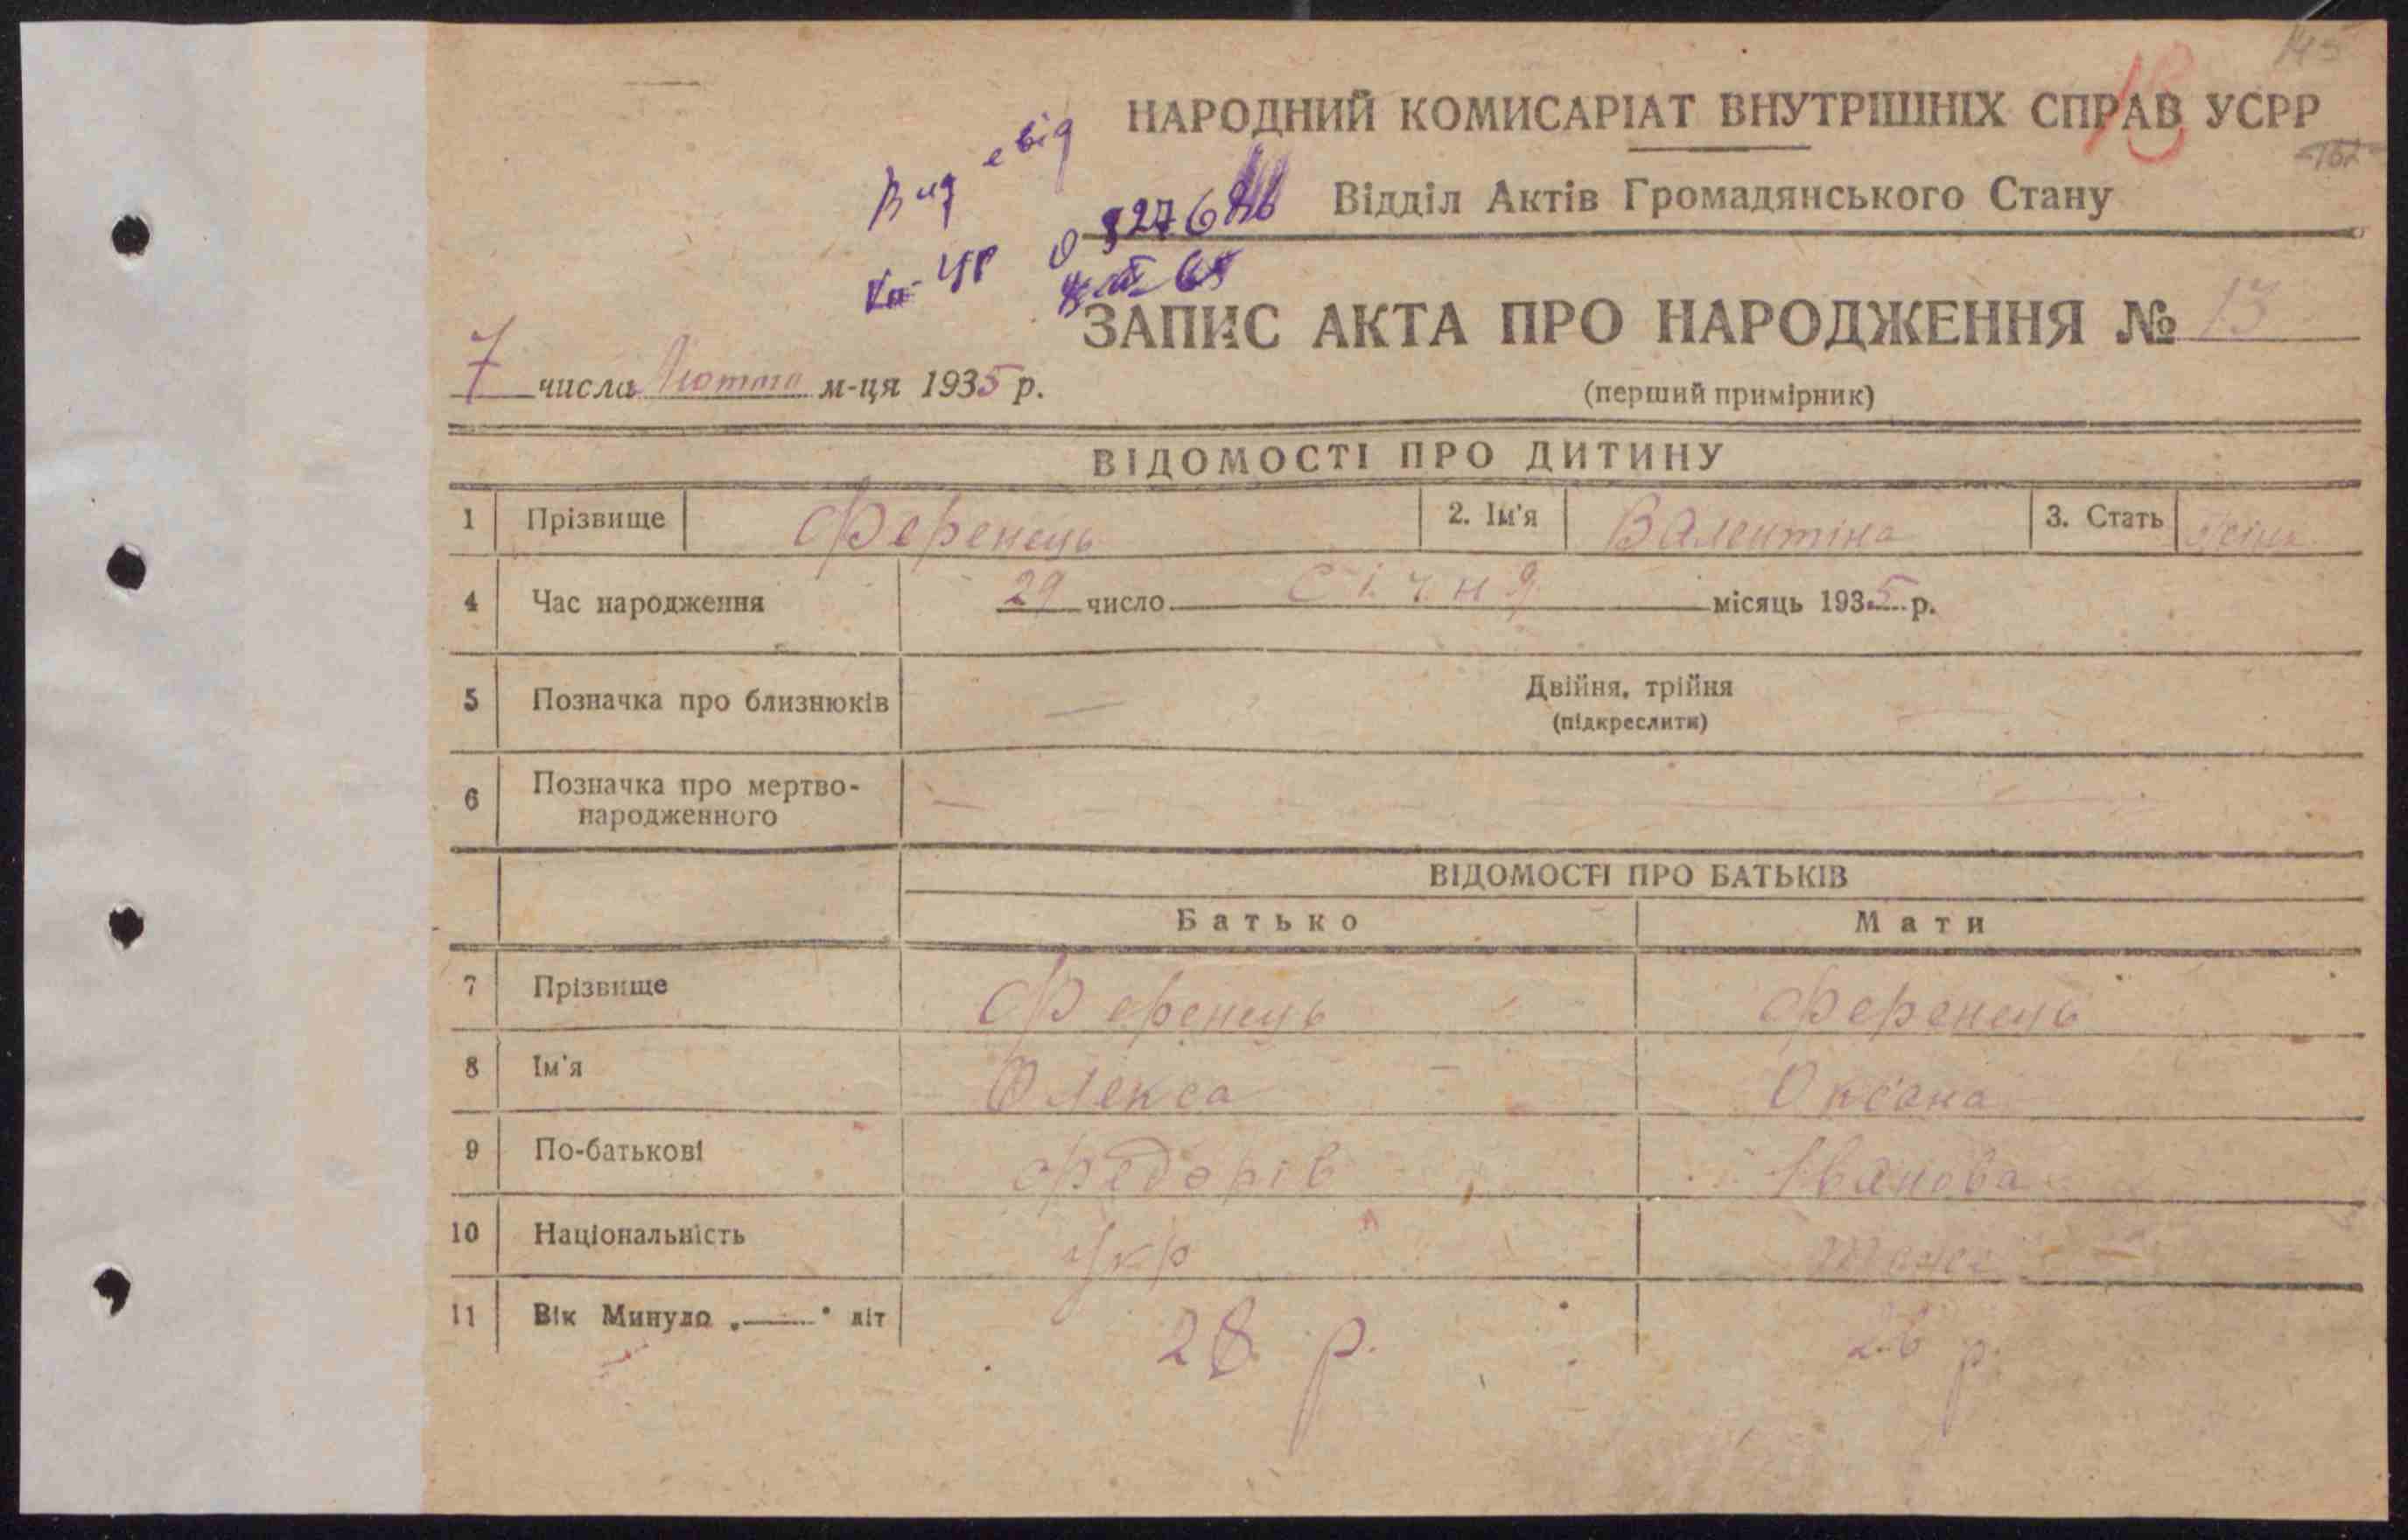 145
НАРОДНИЙ КОМИСАРІАТ ВНУТРІШНІХ СПРАВ УСРР
13
Відділ Актів Громадянського Стану
Вид свід
ЗАПИС АКТА ПРО НАРОДЖЕННЯ № 13
7 числа Лютого м-ця 1935 р.
(перший примірник)
ВІДОМОСТІ ПРО ДИТИНУ
1 Прізвище Ференець 2. Ім'я Валентіна 3. Стать
4 Час народження 29 число січня місяць 1935 р.
5 Позначка про близнюків — Двійня, трійня
(підкреслити)
6 Позначка про мертво-
народженного —
ВІДОМОСТІ ПРО БАТЬКІВ
Батько Мати
7 Прізвище Ференець Ференець
8 Ім'я Олекса Оксана
9 По-батькові Федорів Іванова
10 Національність Укр тоже
11 Вік Минуло „——" літ 28 р. 26 р.